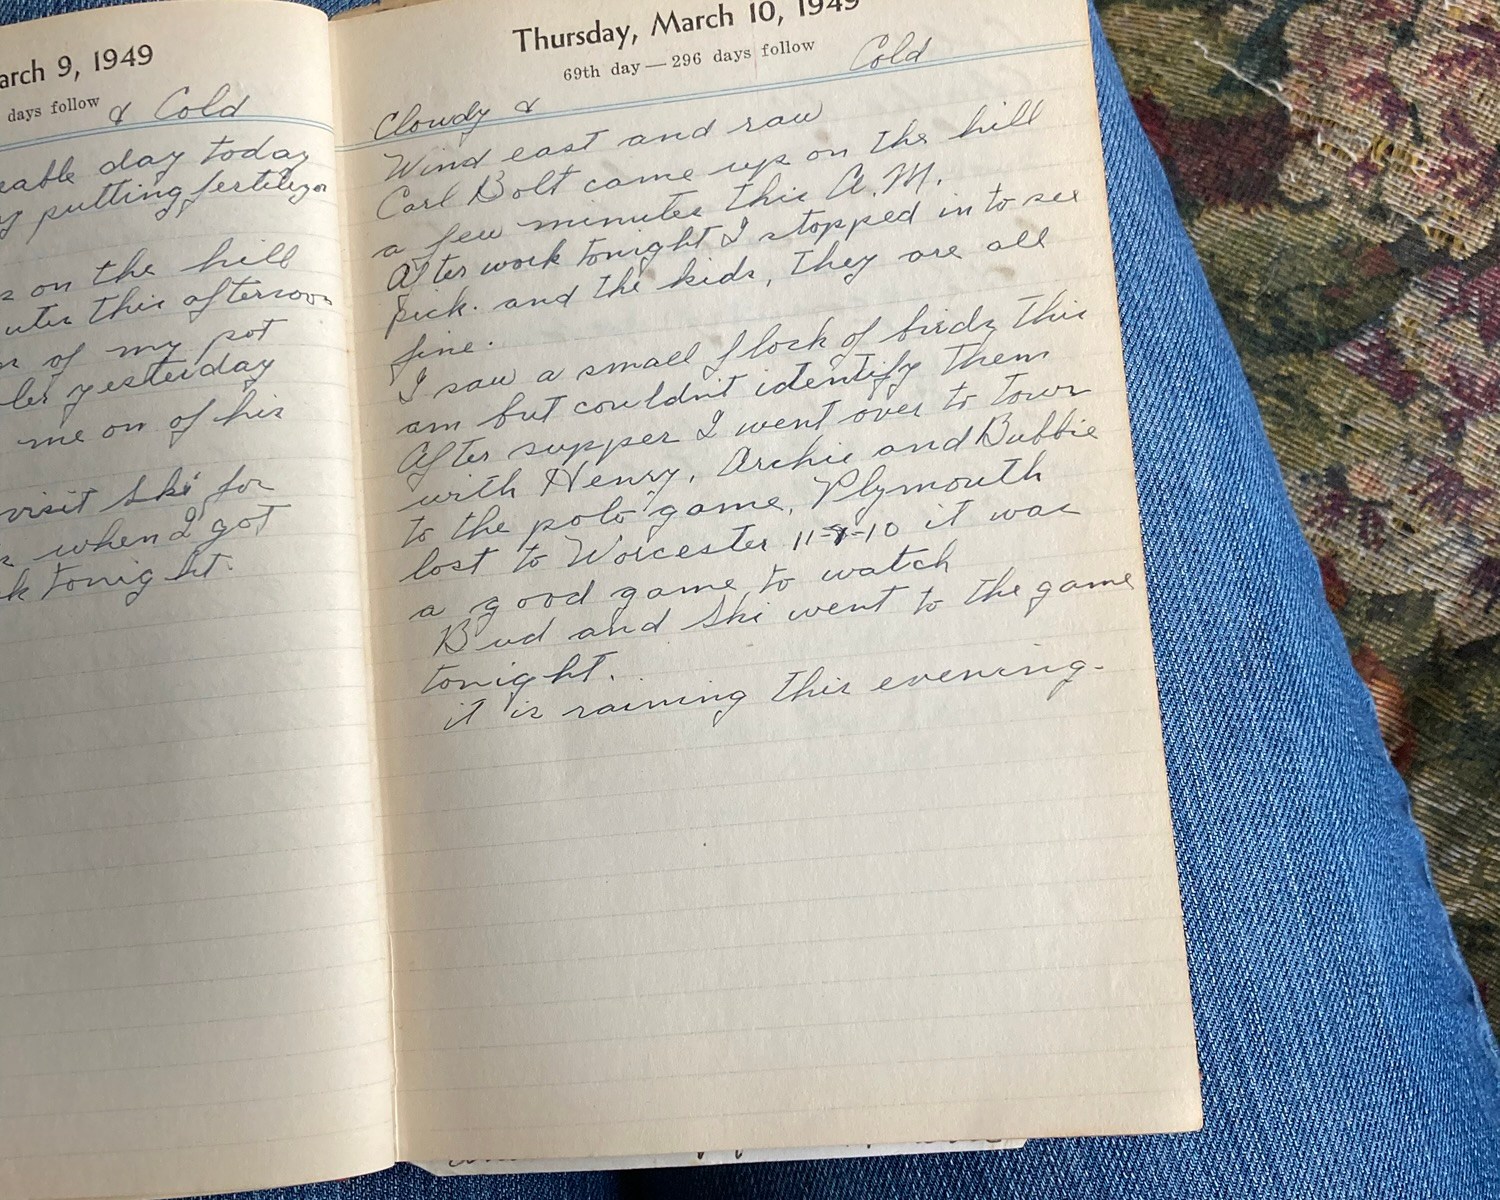 arch 9, 1949
days follow
& Cold
eable day today
putting fertilizer
on the hill
this afternoon
of my pot
yesterday
me on of his
visit Ski for
when I got
k tonight.
Thursday, March 10, 1949
69th day — 296 days follow
Cloudy & Cold
Wind east and raw
Carl Bolt came up on the hill
a few minutes this A.M.
After work tonight I stopped in to see
Dick. and the kids, they are all
fine.
I saw a small flock of birds this
am but couldn't identify them
After supper I went over to town
with Henry, Archie and Bubbie
to the polo game, Plymouth
lost to Worcester 11-10 it was
a good game to watch
Bud and Ski went to the game
tonight.
it is raining this evening.